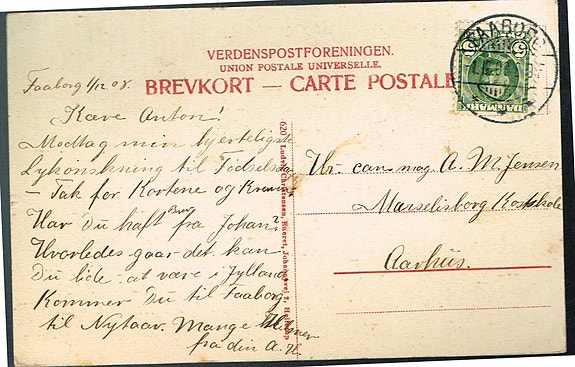 VERDENSPOSTFORENINGEN.
UNION POSTALE UNIVERSELLE.
BREVKORT — CARTE POSTALE
FAABORG
DANMARK
5
Faaborg 1/12 08.
Kære Anton!
Modtag min hjerteligste
Lykønskning til Födselsdag
- Tak for Kortene og
Har Du haft Brev fra Johan?
Hvorledes gaar det kan
Du lide at være i Jylland
Kommer Du til Faaborg
til Nytaar. Mange
fra din A.
620 Ludvig Christensen, Eneret,
Hr. can. mag A. M. Jensen
Marselisborg Kostskole
Aarhus.